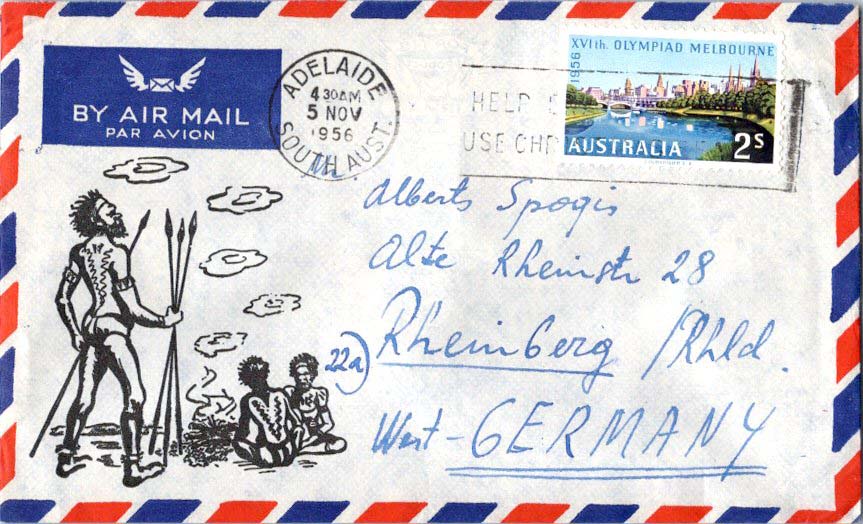 BY AIR MAIL
PAR AVION
ADELAIDE
4 30AM
5 NOV
1956
SOUTH AUST.
HELP
USE
XVIth. OLYMPIAD MELBOURNE
1956
AUSTRALIA 2S
Alberts Spogis
Alte Rheinstr 28
22a) Rheinberg /Rhld.
West-GERMANY